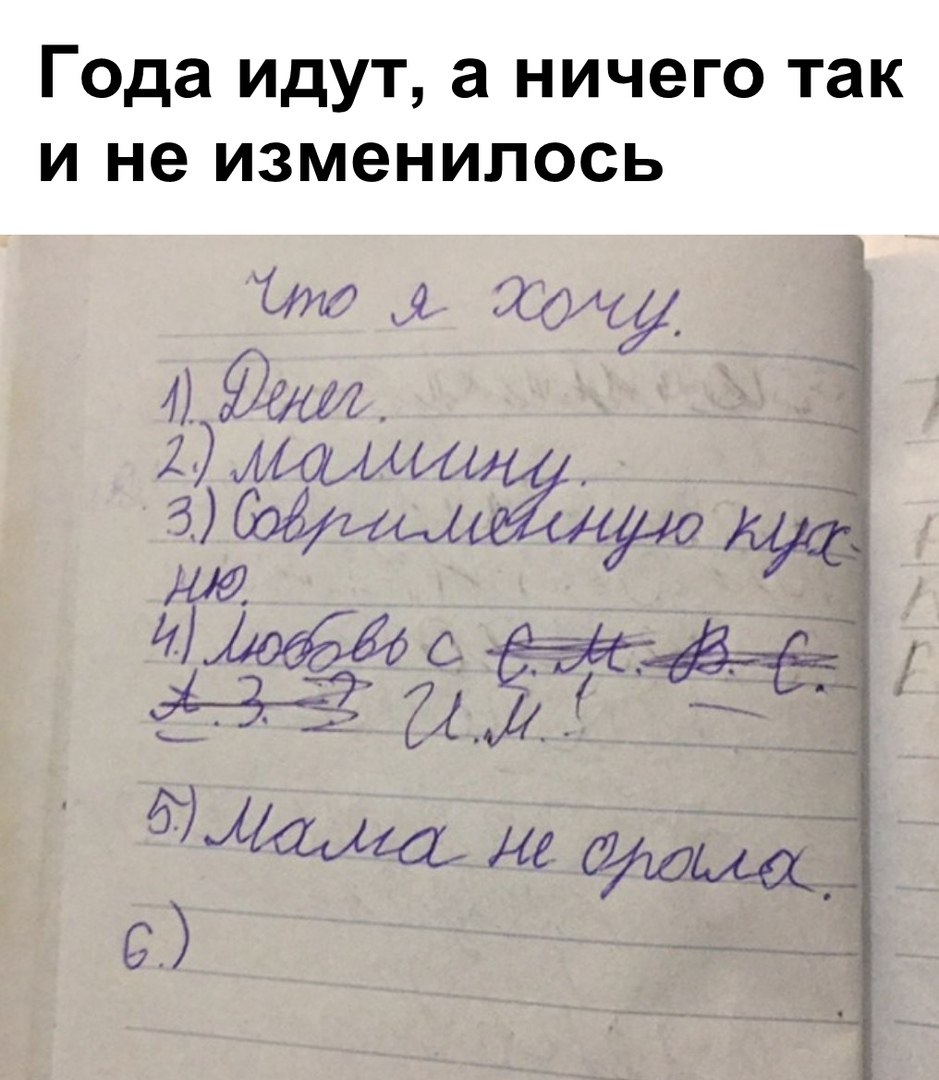 Года идут, а ничего так
и не изменилось
Что я хочу.
1) Денег.
2.) Машину.
3.) Совримённую кух-
ню.
4.) Любовь с С. М. В. С.
А. З. И.М.!
5.) Мама не орала.
6.)